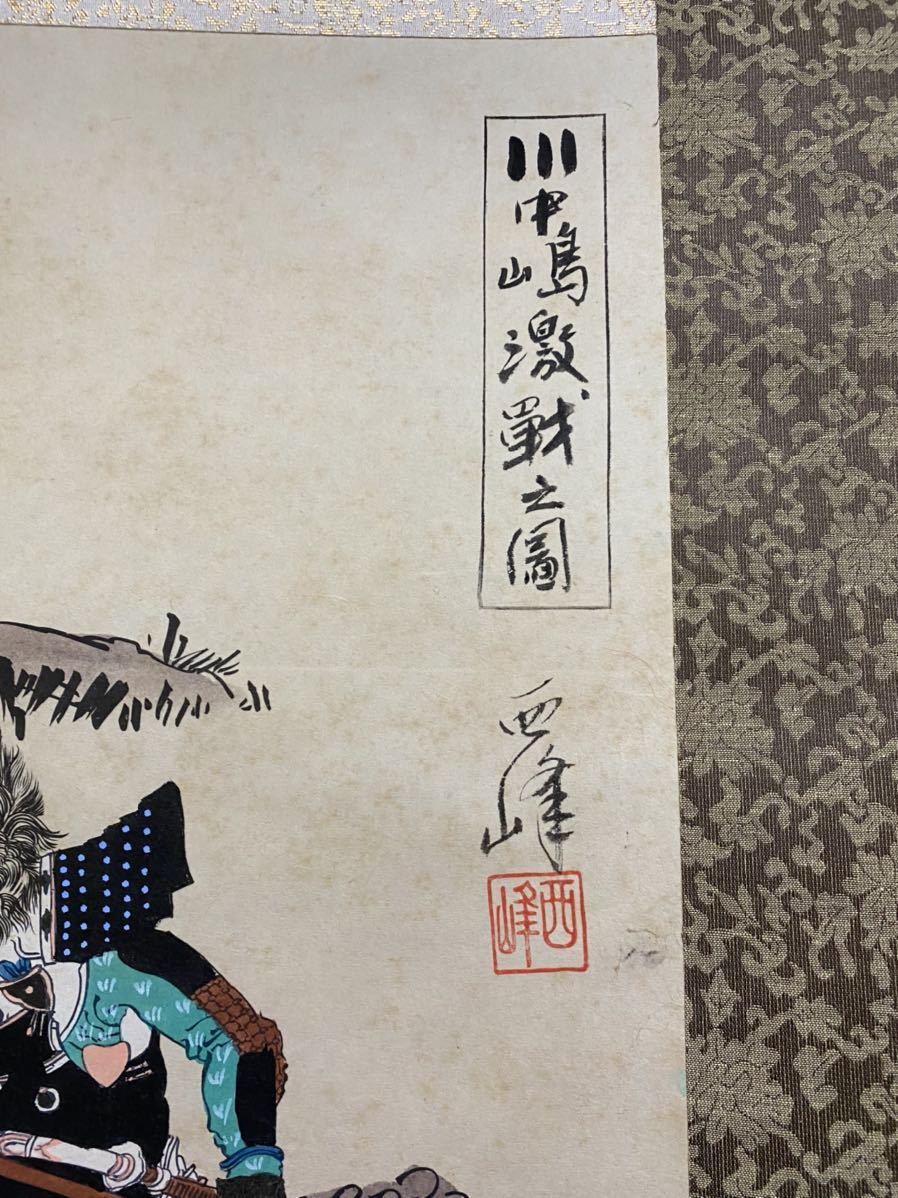 川中嶋激戰之圖
西峰
西峰